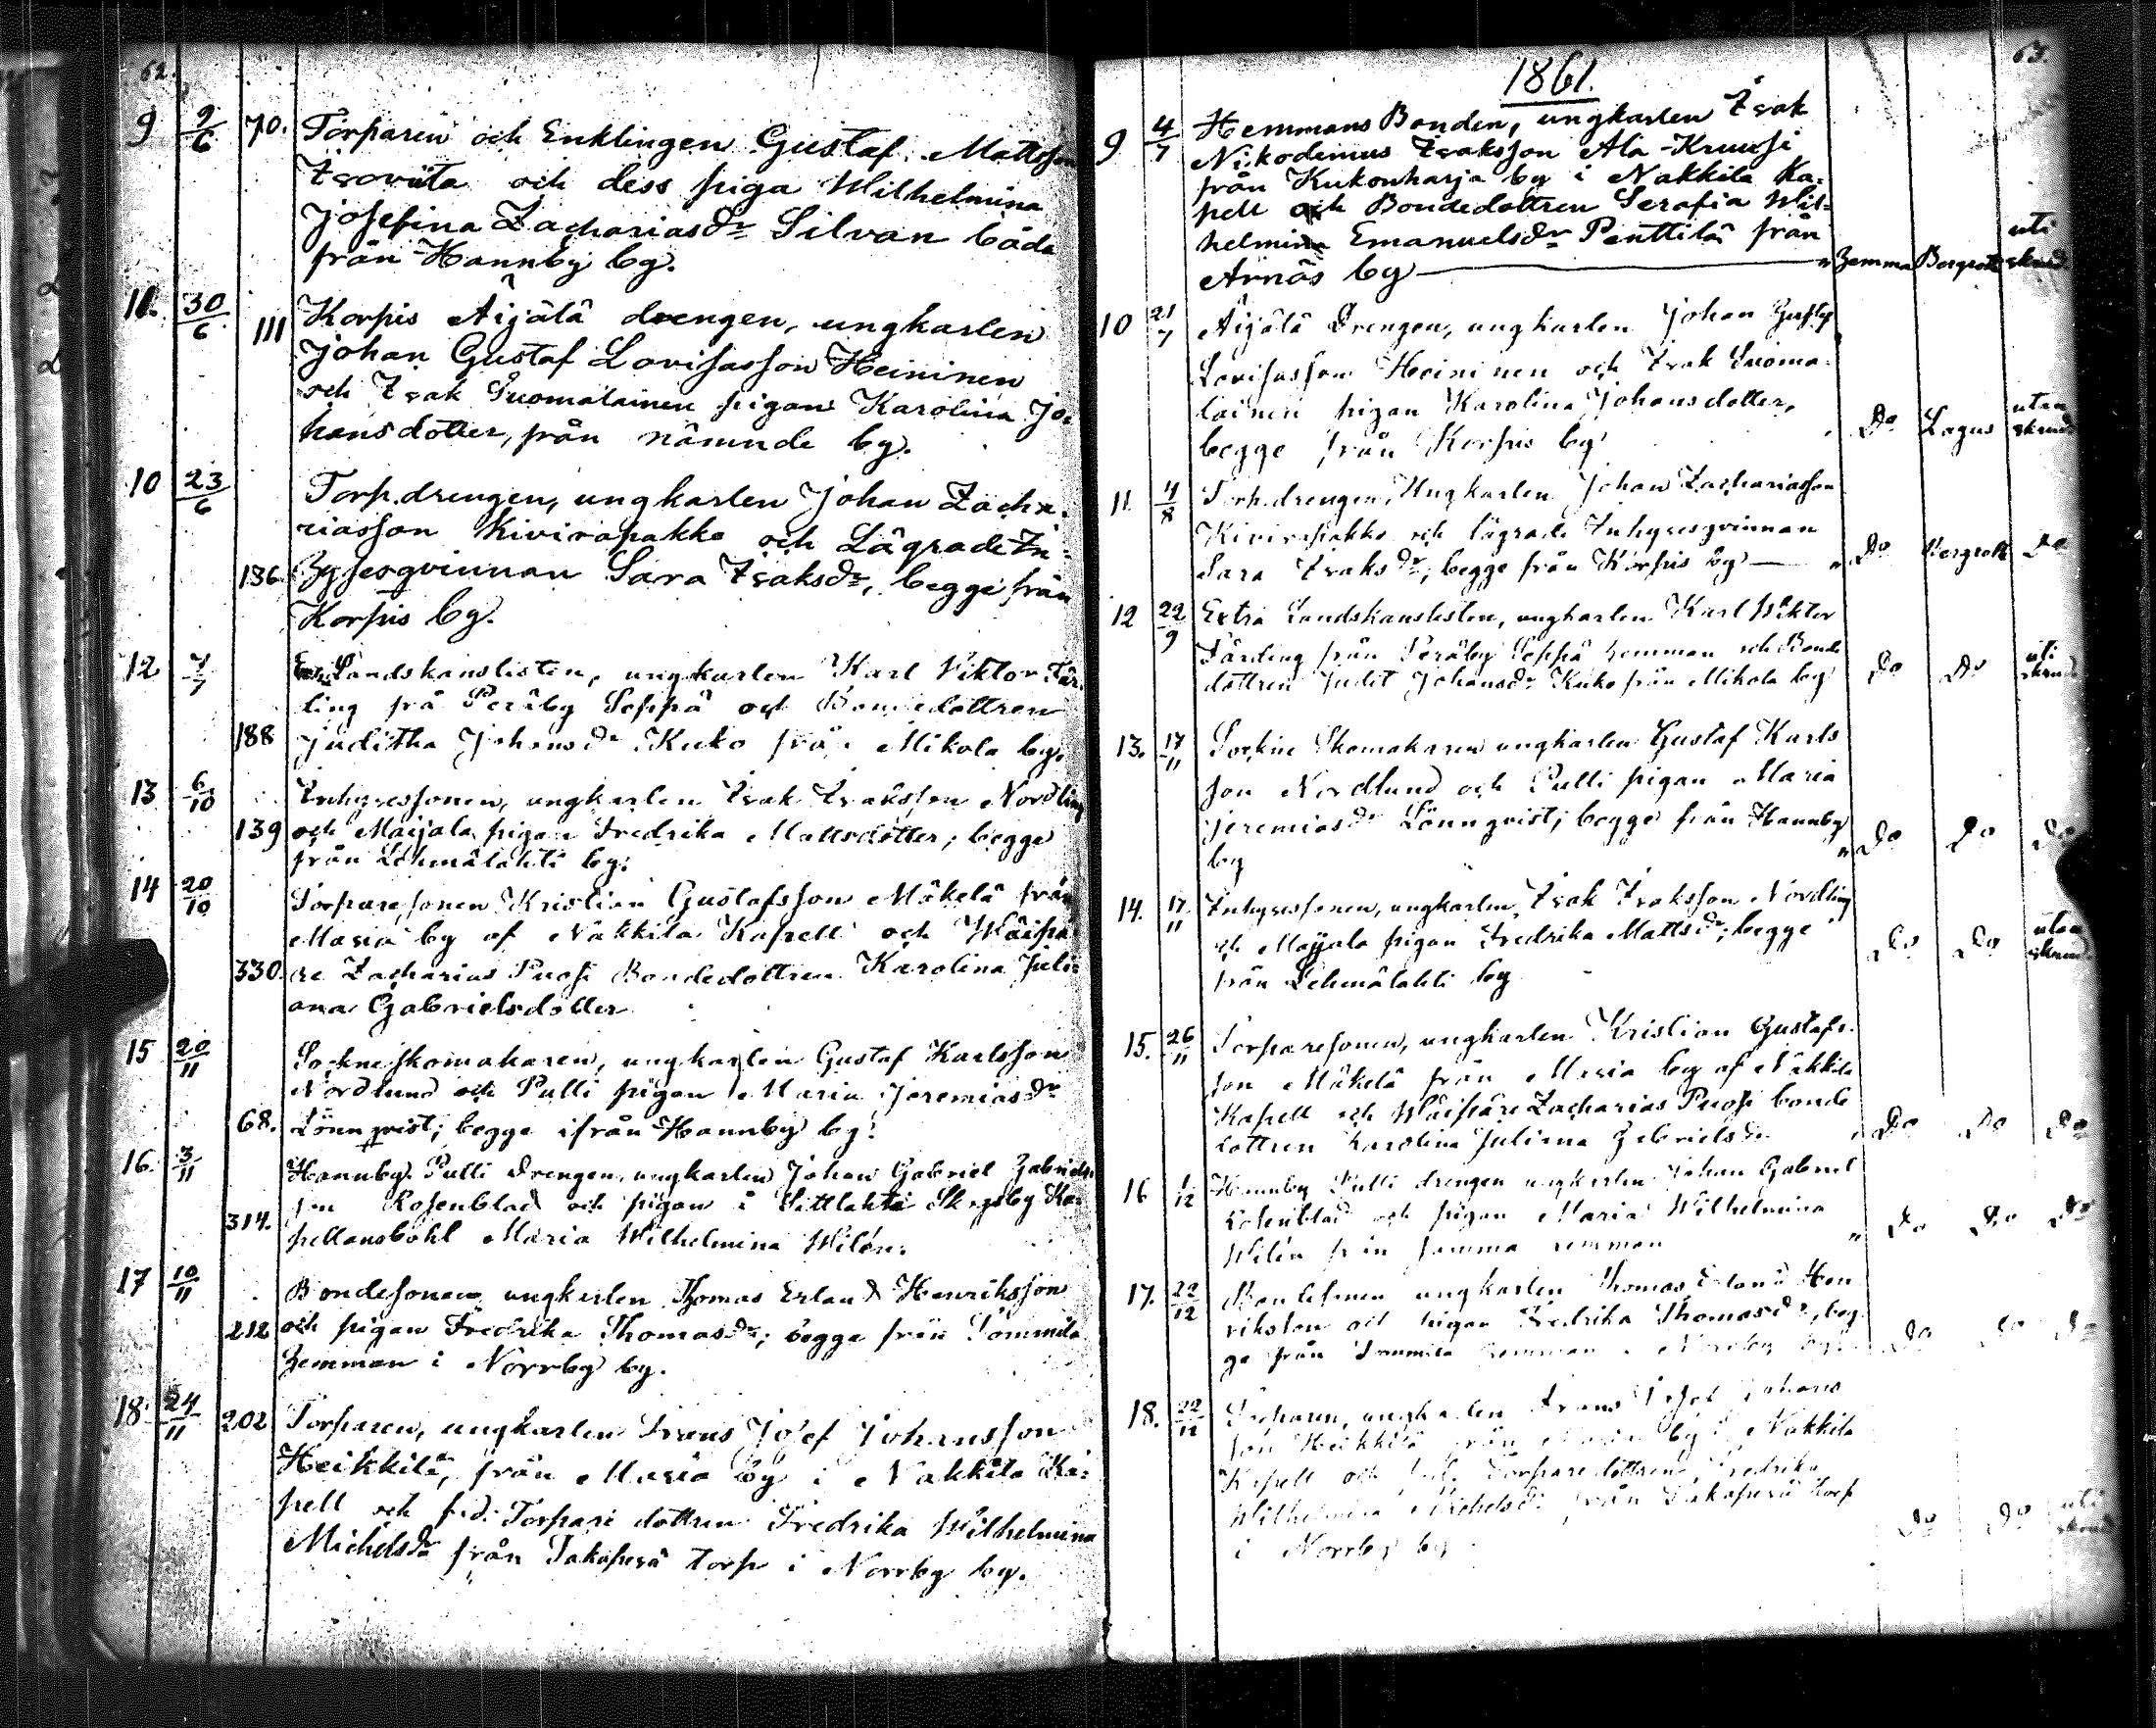 62.
9 9/6 70. Torparen och Enklingen Gustaf Mattsson
Isoviita och dess piga Wilhelmina
Josefina Zachariasdr Silvan båda
från Hannby by.
11. 30/6 111 Korpis Äijälä drengen, ungkarlen
Johan Gustaf Lovisasson Heininen
och Isak Suomalainen pigan Karolina Jo-
hansdotter, från nämnde by.
10 23/6 Torp.drengen, ungkarlen Johan Zacha-
riasson Kivirapakka och Lägrade In-
136. hysesqvinnan Sara Isaksdr, begge från
Korpis by.
12 7/7 Landskanslisten, ungkarlen Karl Viktor Fär-
ling frå Peräby Seppä och Bondedottren
188 Juditha Johansdr Kuko från Mikola by.
13 6/10 Inhysessonen, ungkarlen Isak Isaksson Nordling
139 och Maijala pigan Fredrika Mattsdotter; begge
från Lehmälahti by.
14 20/10 Torparesonen Kristian Gustafsson Mäkelä från
Masia by af Nakkila Kapell och Wäipä-
330. re Zacharias Puosi Bondedottren Karolina Juli-
ana Gabrielsdotter
15 20/11 Sockneskomakaren, ungkarlen Gustaf Karlsson
Nordlund och Pulli pigan Maria Jeremiasdr
68. Lönnqvist; begge ifrån Hannby by.
16. 3/11 Hannby Pulli drengen, ungkarlen Johan Gabriel Gabriels-
314. son Rosenblad och pigan i Sittlahti Skogsby Ka-
pellansbohl Maria Wilhelmina Wilén.
17 10/11 Bondesonen ungkarlen Thomas Erland Henriksson
212 och pigan Fredrika Thomasdr; begge från Tommila
hemman i Norrby by.
18. 24/11 202 Torparen, ungkarlen Frans Josef Johansson
Heikkilä, från Masia by i Nakkila Ka-
pell och f.d. Torpare dottren Fredrika Wilhelmina
Michelsdr från Takaperä torp i Norrby by.
1861.
63.
9 4/7 Hemmans Bonden, ungkarlen Isak
Nikodemus Isaksson Ala-Kruusi
från Kukonharja by i Nakkila Ka-
pell och Bondedottren Serafia Wil-
helmina Emanuelsdr Penttilä från
Arnäs by " hemma Bergroth uti skrud.
10 21/7 Äijälä drengen, ungkarlen Johan Gustaf
Lovisasson Heininen och Isak Suoma-
lainen pigan Karolina Johansdotter,
begge från Korpis by Do Lagus utan skrud
11. 4/8 Torp.drengen, Ungkarlen Johan Zachariasson
Kivirapakka och lägrade Inhysesqvinnan
Sara Isaksdr; begge från Korpis by " Do Bergroth Do
12 22/9 Extra Landskanslisten, ungkarlen Karl Wiktor
Färling från Peräby Seppä hemman och Bonde
dottren Judit Johansdr Kuko från Mikola by Do Do uti skrud
13. 17/11 Sockne Skomakaren ungkarlen Gustaf Karls
son Nordlund och Pulli pigan Maria
Jeremiasdr Lönnqvist; begge från Hannby
by " Do Do Do
14. 17/11 Inhysessonen, ungkarlen Isak Isaksson Nordling
och Maijala pigan Fredrika Mattsdr; begge
från Lehmälahti by Do Do utan skrud.
15. 26/11 Torparesonen, ungkarlen Kristian Gustafs-
son Mäkelä från Masia by af Nakkila
Kapell och Wäipäre Zacharias Puosi bonde
dottren Karolina Juliana Gabrielsdr Do Do Do
16 1/12 Hannby Pulli drengen ungkarlen Johan Gabriel
Rosenblad och pigan Maria Wilhelmina
Wilén från samma hemman " Do Do Do
17. 22/12 Bondesonen ungkarlen Thomas Erland Hen
riksson och pigan Fredrika Thomasdr, beg-
ge från Tommila hemman i Norrby by. Do Do Do
18. 22/12 Torparen, ungkarlen Frans Josef Johans
son Heikkilä från Masia by i Nakkila
Kapell och f.d. Torpare dottren Fredrika
Wilhelmina Michelsdr från Takaperä torp
i Norrby by Do Do uti skrud